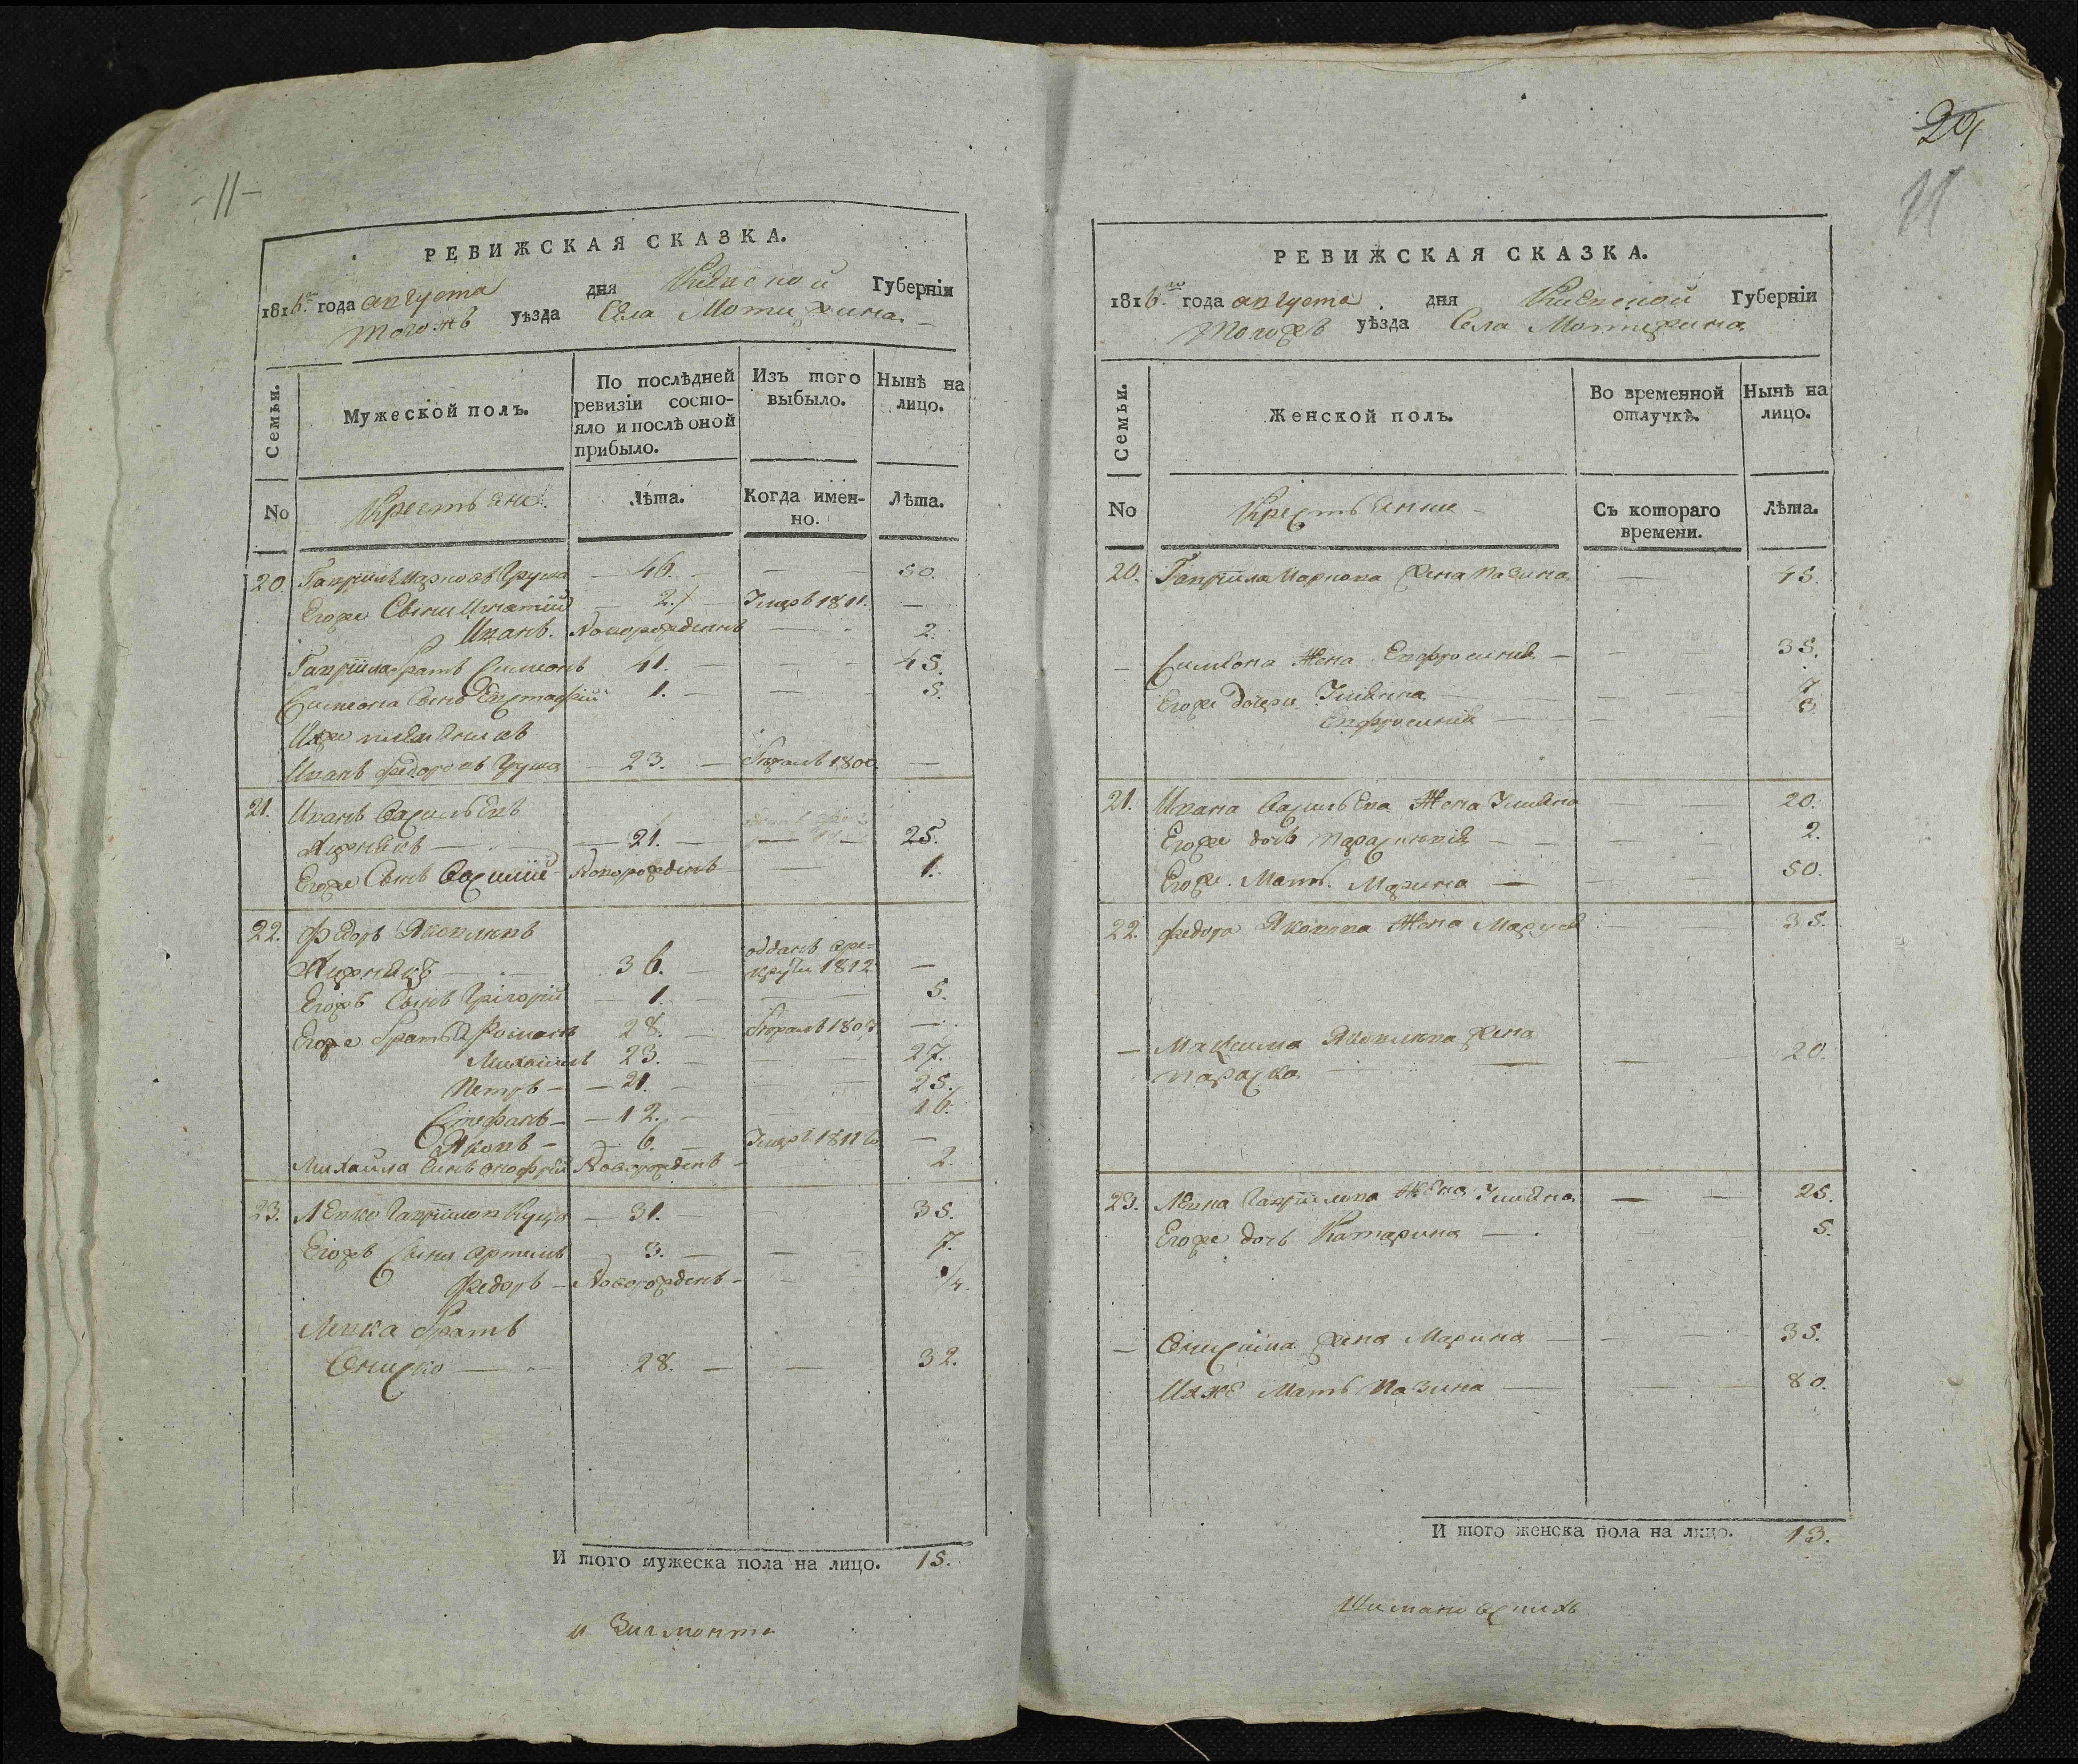 -11-
РЕВИЖСКАЯ СКАЗКА.
1816го года августа дня Киевской Губерніи
тогожъ уѣзда Села Мотижина
Семьи. Мужеской полъ. По послѣдней ревизіи состояло и послѣ оной прибыло. Изъ того выбыло. Нынѣ на лицо.
No Крестьяне. Лѣта. Когда именно. Лѣта.
20. Гавриилъ Марковъ Груша — 46. — — 50.
Егоже Сыны Игнатій — 2. — Умеръ 1811. —
Иванъ. Новорожденъ — 2.
Гавриила братъ Симеонъ 41. — — 45.
Симеона Сынъ Евстафій 1. — — 5.
Ихже племянникъ
Иванъ Федоровъ Груша — 23. — 1800. —
21. Иванъ Васильевъ
— 21. — — 25.
Егоже Сынъ Василій Новорожденъ — 1.
22. Федоръ Яковлевъ
36. — отданъ в рекруты 1812 —
Егожъ Сынъ Григорій — 1. — — 5.
Егоже братья Романъ 28. — —
Михаилъ 23. — — 27.
Петръ — 21. — — 25.
Стефанъ — 12. — 16.
Яковъ — 6. — Умеръ 1811го —
Михайла Сынъ Онофрій Новорожденъ — 2.
23. Левко Гавриловъ Куца — 31. — 35.
Егожъ Сыны Артемъ 3. — — 7.
Федоръ — Новорожденъ — 1/4.
Левка братъ
Ониско — 28. — — 32.
И того мужеска пола на лицо. 15.
и Зигмонта
29
11
РЕВИЖСКАЯ СКАЗКА.
1816го года августа дня Киевской Губерніи
тогожъ уѣзда Села Мотижина
Семьи. Женской полъ. Во временной отлучкѣ. Нынѣ на лицо.
No Крестьянки Съ котораго времени. Лѣта.
20. Гавриила Маркова жена Пазина — 45.
— Симеона Жена Ефросинія — — 35.
Егоже дочери Ульяна — — 7
Ефросинія — — 3
21. Ивана Васильева Жена Ульяна — 20.
Егоже дочь Параскивія — — 2.
Егоже Мать Марина — — 50.
22. Федора Якова Жена Марія — 35.
— Максима Яковлева жена
Параска — — 20.
23. Левка Гаврилова Жена Ульяна — — 25.
Егоже дочь Катарина — 5.
— Онисима жена Марина — — 35.
Ихже Мать Пазина — — 80.
И того женска пола на лицо. 13.
Шимановскихъ